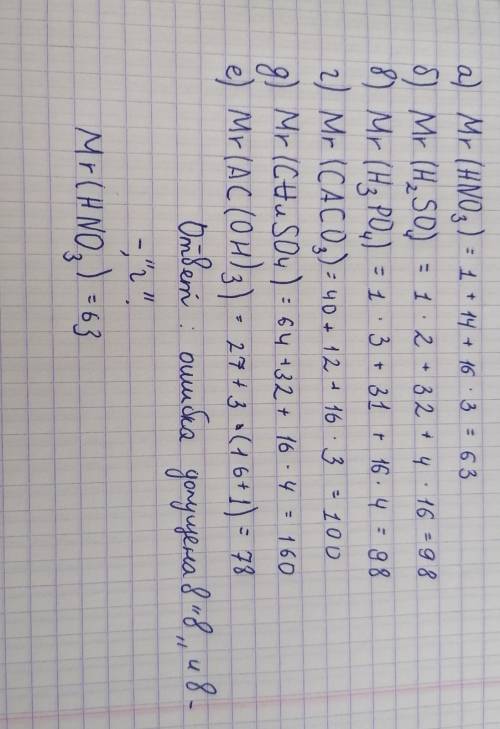 а) Mr (HNO₃) = 1 + 14 + 16 · 3 = 63
б) Mr (H₂SO₄) = 1 · 2 + 32 + 4 · 16 = 98
в) Mr (H₃PO₄) = 1 · 3 + 31 + 16 · 4 = 98
г) Mr (CACO₃) = 40 + 12 + 16 · 3 = 100
д) Mr (SO₄) = 64 + 32 + 16 · 4 = 160
е) Mr (AC(OH)3) = 27 + 3 · (16 + 1) = 78
Ответ: ошибка допущена в "в" и в -
-, "г".
Mr (HNO₃) = 63